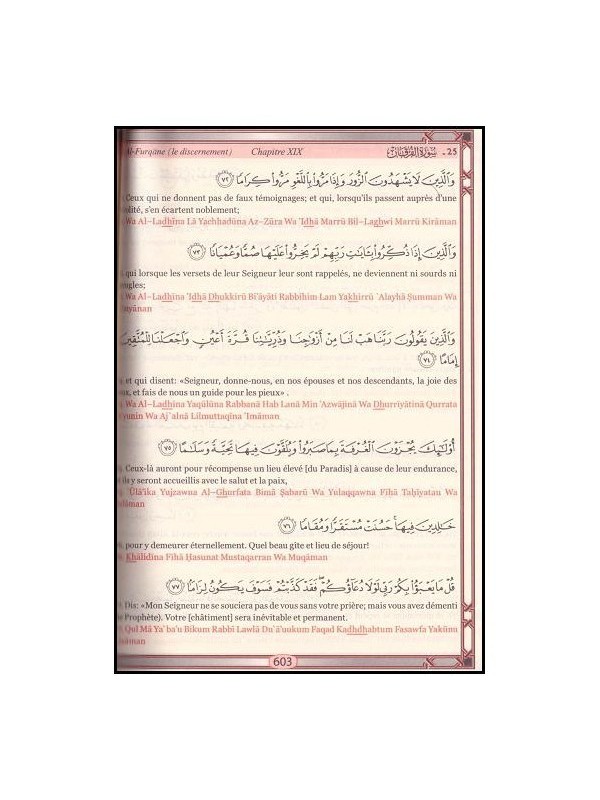 Al-Furqâne (le discernement) Chapitre XIX سورة الفرقان 25.
وَالَّذِينَ لَا يَشْهَدُونَ الزُّورَ وَإِذَا مَرُّوا بِاللَّغْوِ مَرُّوا كِرَامًا ٧٢
Ceux qui ne donnent pas de faux témoignages; et qui, lorsqu'ils passent auprès d'une
s'en écartent noblement;
Wa Al-Ladhîna Lâ Yachhadûna Az-Zûra Wa 'Idhâ Marrû Bil-Laghwi Marrû Kirâman
وَالَّذِينَ إِذَا ذُكِّرُوا بِآيَاتِ رَبِّهِمْ لَمْ يَخِرُّوا عَلَيْهَا صُمًّا وَعُمْيَانًا ٧٣
qui lorsque les versets de leur Seigneur leur sont rappelés, ne deviennent ni sourds ni
Wa Al-Ladhîna 'Idhâ Dhukkirû Bi'âyâti Rabbihim Lam Yakhirrû `Alayhâ Şumman Wa
وَالَّذِينَ يَقُولُونَ رَبَّنَا هَبْ لَنَا مِنْ أَزْوَاجِنَا وَذُرِّيَّاتِنَا قُرَّةَ أَعْيُنٍ وَاجْعَلْنَا لِلْمُتَّقِينَ
إِمَامًا ٧٤
et qui disent: «Seigneur, donne-nous, en nos épouses et nos descendants, la joie des
et fais de nous un guide pour les pieux» .
Wa Al-Ladhîna Yaqûlûna Rabbanâ Hab Lanâ Min 'Azwâjinâ Wa Dhurriyâtinâ Qurrata
Wa Aj`alnâ Lilmuttaqîna 'Imâman
أُولَٰئِكَ يُجْزَوْنَ الْغُرْفَةَ بِمَا صَبَرُوا وَيُلَقَّوْنَ فِيهَا تَحِيَّةً وَسَلَامًا ٧٥
Ceux-là auront pour récompense un lieu élevé [du Paradis] à cause de leur endurance,
ils y seront accueillis avec le salut et la paix,
'Ûlâ'ika Yujzawna Al-Ghurfata Bimâ Şabarû Wa Yulaqqawna Fîhâ Taḥîyatan Wa
خَالِدِينَ فِيهَا حَسُنَتْ مُسْتَقَرًّا وَمُقَامًا ٧٦
pour y demeurer éternellement. Quel beau gîte et lieu de séjour!
Khâlidîna Fîhâ Ḥasunat Mustaqarran Wa Muqâman
قُلْ مَا يَعْبَأُ بِكُمْ رَبِّي لَوْلَا دُعَاؤُكُمْ فَقَدْ كَذَّبْتُمْ فَسَوْفَ يَكُونُ لِزَامًا ٧٧
Dis: «Mon Seigneur ne se souciera pas de vous sans votre prière; mais vous avez démenti
Prophète). Votre [châtiment] sera inévitable et permanent.
Qul Mâ Ya`ba'u Bikum Rabbî Lawlâ Du`â'uukum Faqad Kadhdhabtum Fasawfa Yakûnu
Lizâman
603